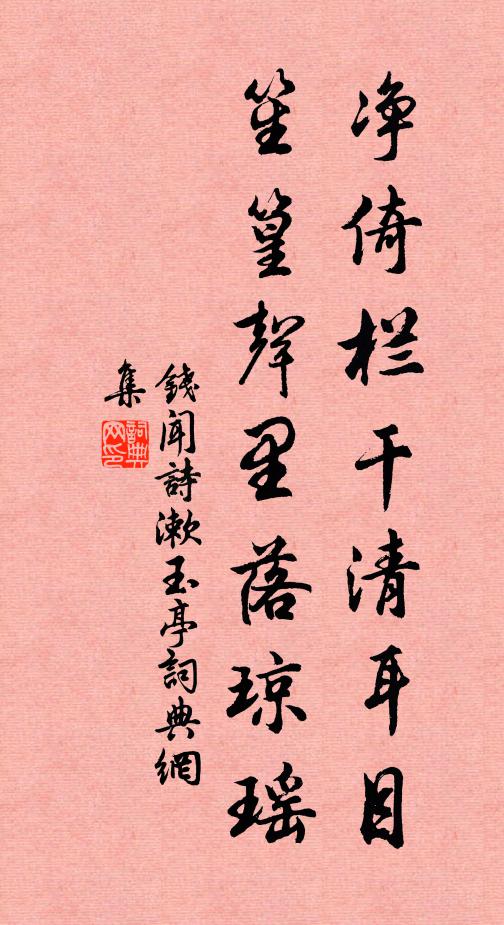 净倚栏干清耳目
笙篁聲里落琼瑶
錢聞詩漱玉亭詞典網
集
詞典網印